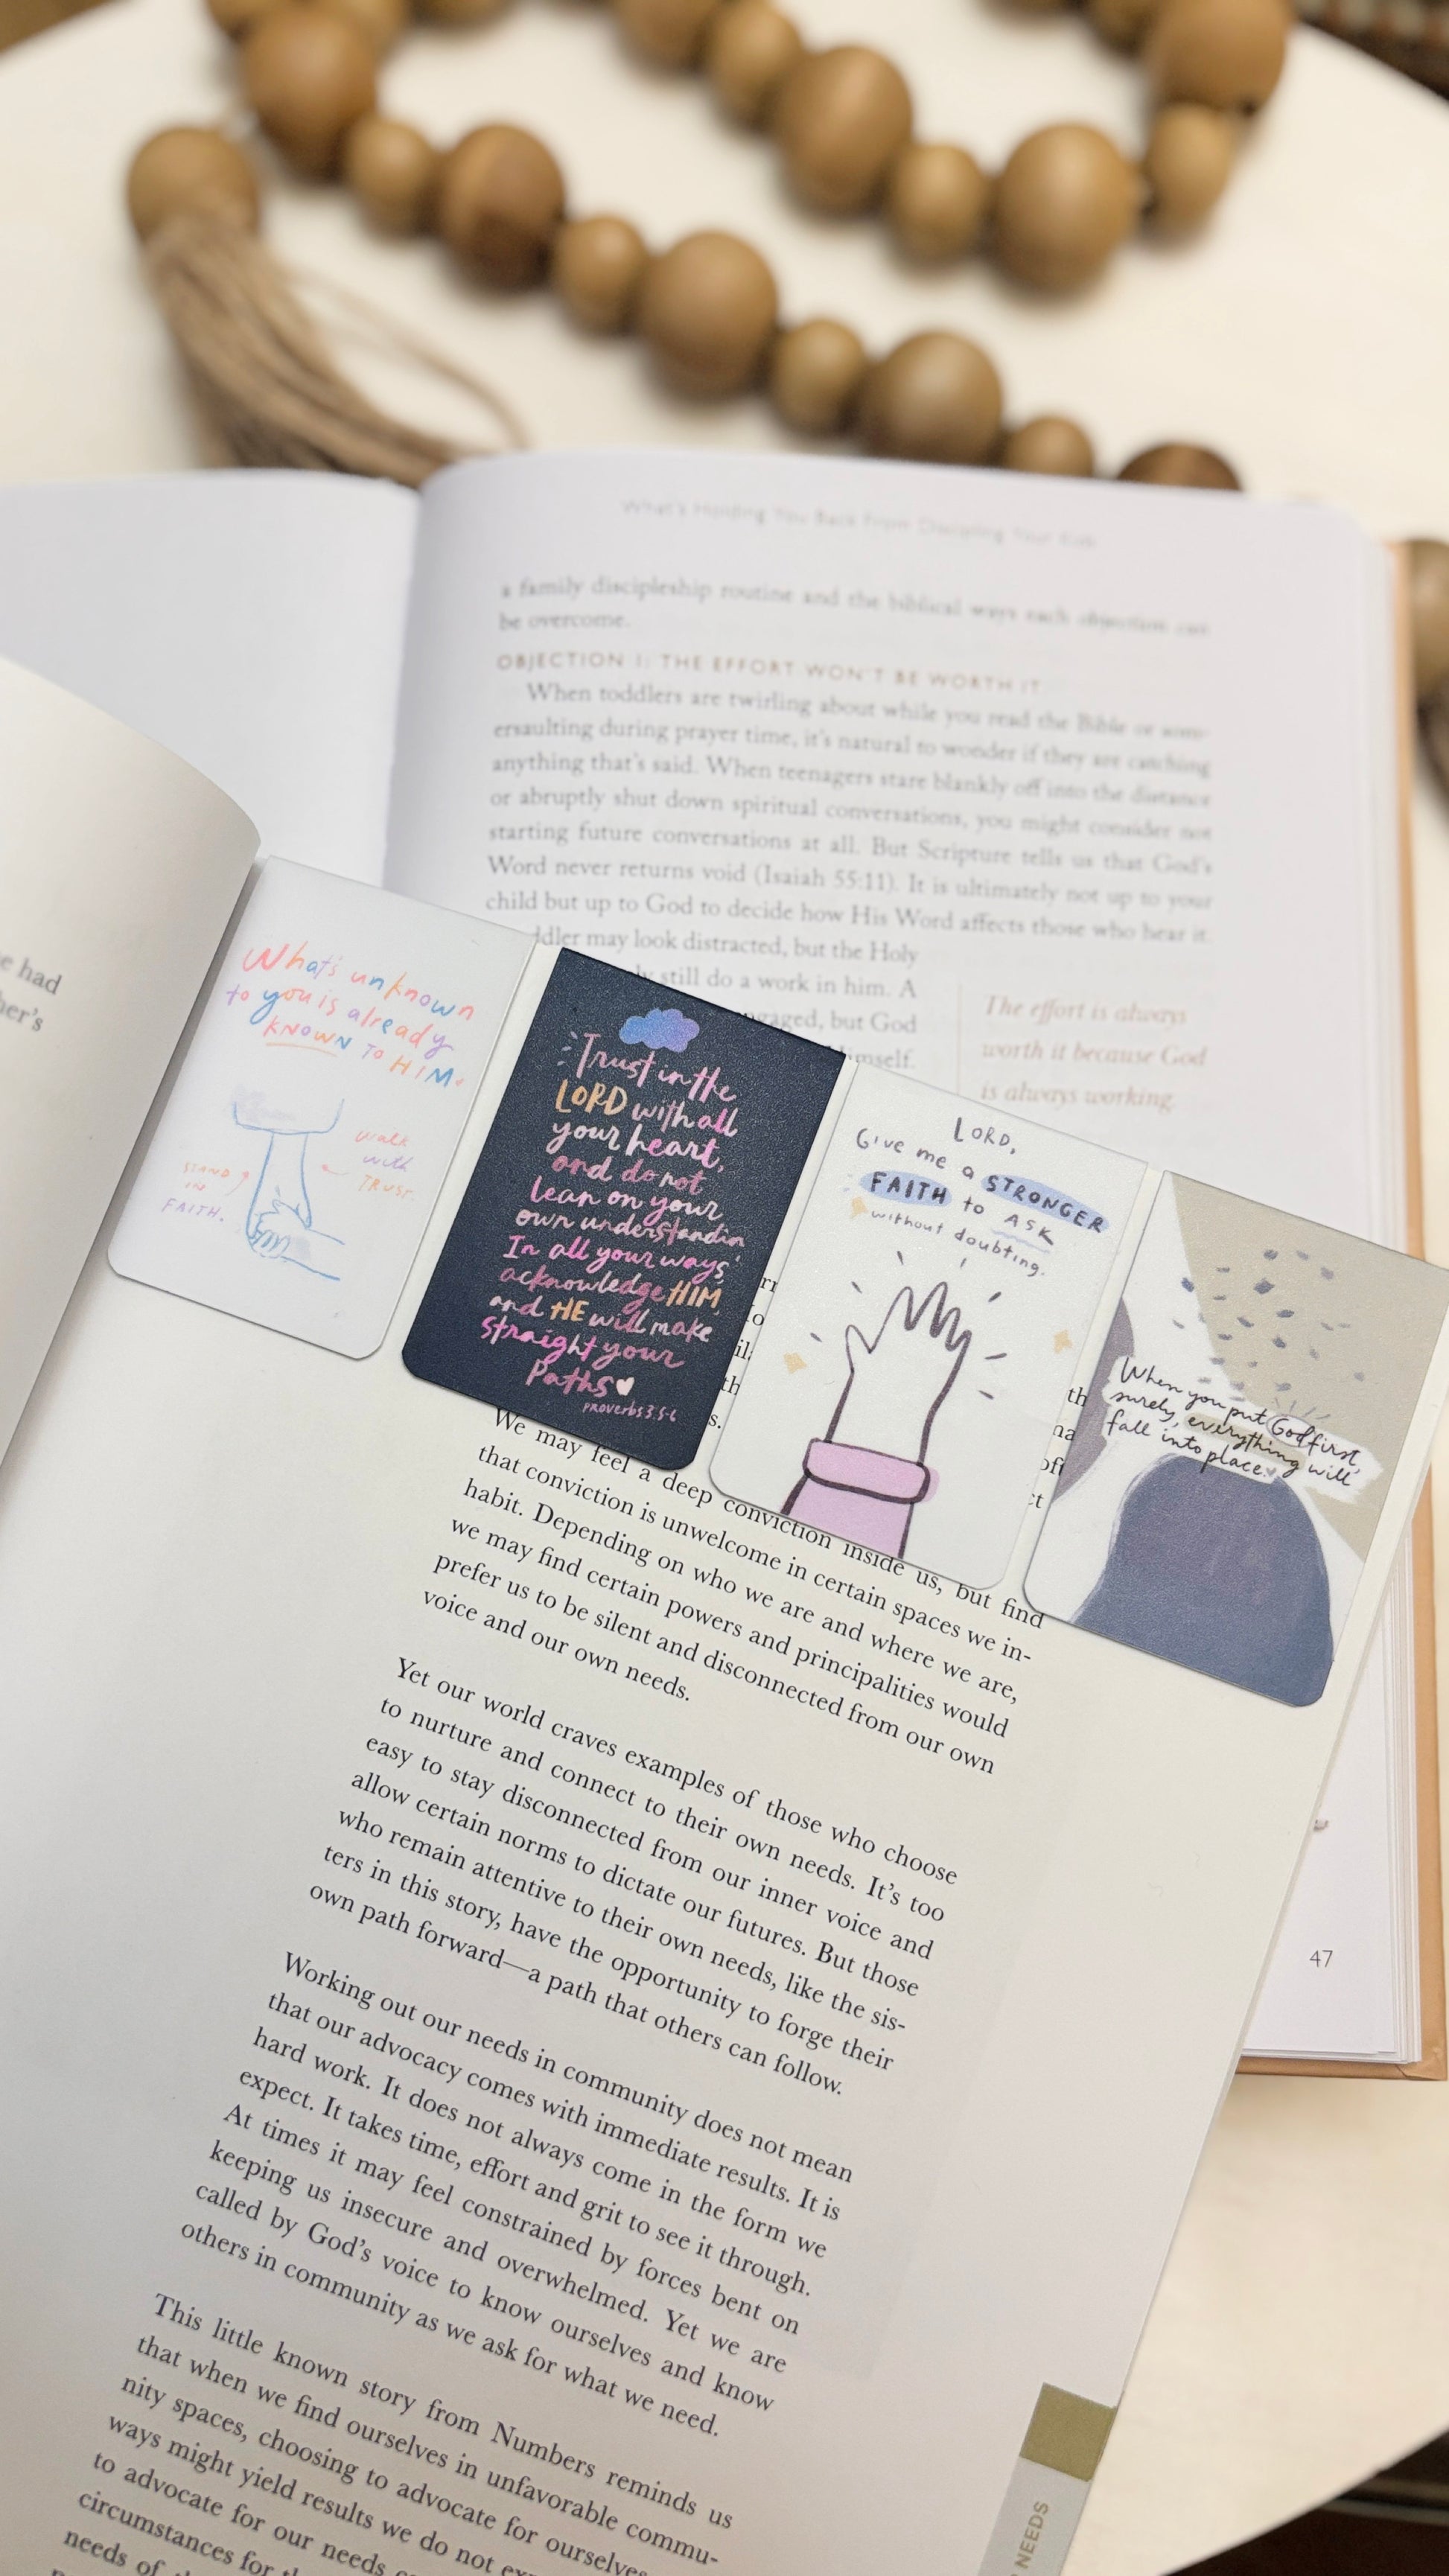 What's Holding You Back From Discipling Your Kids
a family discipleship routine and the biblical ways each objection can
be overcome.
OBJECTION 1: THE EFFORT WON'T BE WORTH IT
When toddlers are twirling about while you read the Bible or som-
ersaulting during prayer time, it's natural to wonder if they are catching
anything that's said. When teenagers stare blankly off into the distance
or abruptly shut down spiritual conversations, you might consider not
starting future conversations at all. But Scripture tells us that God's
Word never returns void (Isaiah 55:11). It is ultimately not up to your
child but up to God to decide how His Word affects those who hear it.
ddler may look distracted, but the Holy
still do a work in him. A
gaged, but God
imself.
The effort is always
worth it because God
is always working.
47
e had
her's
What's unknown
to you is already
KNOWN TO HIM.
walk
with
TRUST.
STAND
IN
FAITH.
Trust in the
LORD with all
your heart,
and do not
lean on your
own understandin
In all your ways
acknowledge HIM,
and HE will make
straight your
Paths
Proverbs 3:5-6
LORD,
Give me a STRONGER
FAITH to ASK
without doubting.
When you put God first,
surely, everything will
fall into place.
We may feel a deep conviction inside us, but find
that conviction is unwelcome in certain spaces we in-
habit. Depending on who we are and where we are,
we may find certain powers and principalities would
prefer us to be silent and disconnected from our own
voice and our own needs.
Yet our world craves examples of those who choose
to nurture and connect to their own needs. It's too
easy to stay disconnected from our inner voice and
allow certain norms to dictate our futures. But those
who remain attentive to their own needs, like the sis-
ters in this story, have the opportunity to forge their
own path forward—a path that others can follow.
Working out our needs in community does not mean
that our advocacy comes with immediate results. It is
hard work. It does not always come in the form we
expect. It takes time, effort and grit to see it through.
At times it may feel constrained by forces bent on
keeping us insecure and overwhelmed. Yet we are
called by God's voice to know ourselves and know
others in community as we ask for what we need.
This little known story from Numbers reminds us
that when we find ourselves in unfavorable commu-
nity spaces, choosing to advocate for ourselves
ways might yield results we do not ex
to advocate for our needs
circumstances for
needs of
NEEDS